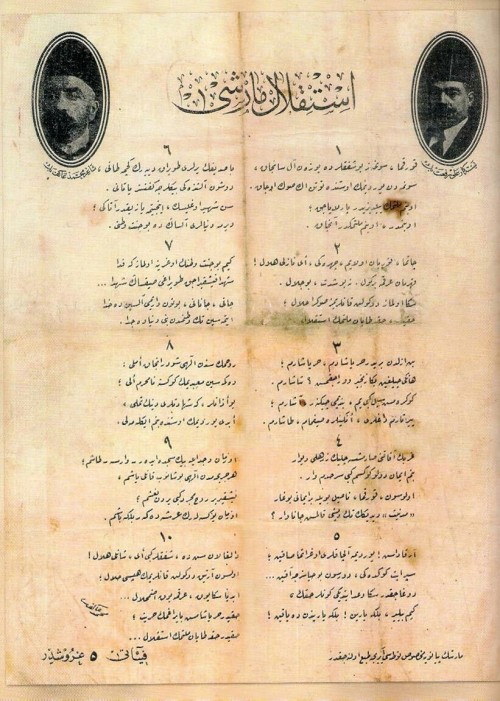 استقلال مارشی
بستكار علی رفعت بك
شاعر محمد عاكف بك
١
قورقما، سونمز بو شفقلرده يوزن آل سانجاق،
سونمه‌دن يورديمك اوستنده توتن اك صوك اوجاق.
او بنم ملتمك ييلديزيدر، پارلاياجق؛
او بنمدر، او بنم ملتمكدر آنجاق.
٢
چاتما، قوربان اولايم، چهره‌كی، ای نازلی هلال!
قهرمان عرقمه بر گول.. نه بو شدت، بو جلال.
سكا اولماز دوكولن قانلرمز صوكرا حلال؛
حقيدر، حقه طاپان ملتمك استقلال.
٣
بن ازلدن بريدر حر ياشادم، حر ياشارم؛
هانگی چيلغين بكا زنجير ووراجقمش؟ شاشارم!
كوكره‌مش سيل كبی يم، بنديمی چيكنر، آشارم؛
ييرتارم طاغلری، انكينلره صيغمام، طاشارم.
٤
غربك آفاقنی صارمشسه چليك زرهلی ديوار
بنم ايمان دولو كوكسم كبی سرحدم وار.
اولوسون، قورقما، ناصل بويله بر ايمانی بوغار
«مدنيت» ديديكك تك ديشی قالمش جاناوار؟
٥
آرقاداش! يورديمه آلچاقلری اوغراتما صاقين؛
سپر ايت كوكده‌كی، دورسون بو حياسزجه آقين...
دوغاجقدر سكا وعد ايتديكی كونلر حقك،
كيم بيلير، بلكه يارين! بلكه ياريندن ده ياقين!
٦
باصديغك يرلری طوپراق دييه‌رك كچمه طانی،
دوشون آلتنده‌كی بيكلرجه كفنسز ياتانی.
سن شهيد اوغليسك، اينجيتمه، يازيقدر آتاكی؛
ويرمه دنيالری آلساك ده بو جنت وطنی.
٧
كيم بو جنت وطنك اوغرينه اولماز كه فدا
شهدا فيشقيراجق طوپراغی صيقساك شهدا...
جانی، جانانی، بوتون واريمی آلسين ده خدا
ايتمه‌سين تك وطنمدن بنی دنياده جدا.
٨
روحمك سندن الهی شودر آنجاق املی؛
دكمه‌سين معبديمك كوكسنه نامحرم الی؛
بو اذانلر، كه شهادتلری دينك تملی،
ابدی يورديمك اوستنده بنم ايكله‌ملی.
٩
او زمان وجد ايله بيك سجده ايدر - وارسه - طاشم؛
هر جريحه‌مدن الهی بوشانوب قانلی ياشم،
فيشقيرير روح مجرد كبی يردن نعشم؛
او زمان يوكسله‌رك عرشه دكر بلكه باشم.
١٠
دالغالان سن ده شفقلر كبی ای شانلی هلال!
اولسون آرتيق دوكولن قانلرمك هپسی حلال؛
ابديا سكا يوق، عرقمه يوق اضمحلال...
حقيدر حر ياشامش بايراغمك حريت؛
حقيدر حقه طاپان ملتمك استقلال...
مارشك پيانويه مخصوص نوطه‌سی آيريجه طبع اولنه‌جقدر
فيآتی ٥ غروشدر